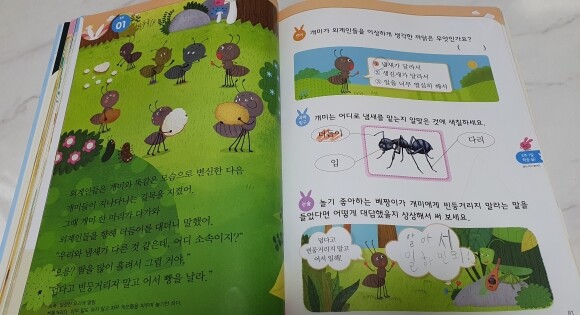 01
외계인들은 개미와 똑같은 모습으로 변신한 다음
개미들이 지나다니는 길목을 지켰어.
그때 개미 한 마리가 다가와
외계인들을 향해 더듬이를 대더니 말했어.
"우리와 냄새가 다른 것 같은데, 어디 소속이지?"
땀을 많이 흘려서 그럴 거야."
빈둥거리지 말고 어서 빵을 날라."
개미가 외계인들을 이상하게 생각한 까닭은 무엇인가요?
( )
① 냄새가 달라서
② 생김새가 달라서
③ 일을 너무 열심히 해서
개미는 어디로 냄새를 맡는지 알맞은 것에 색칠하세요.
더듬이
다리
입
놀기 좋아하는 베짱이가 개미에게 빈둥거리지 말라는 말을
들었다면 어떻게 대답했을지 상상해서 써 보세요.
덥다고
빈둥거리지 말고
어서 일해!
알아서